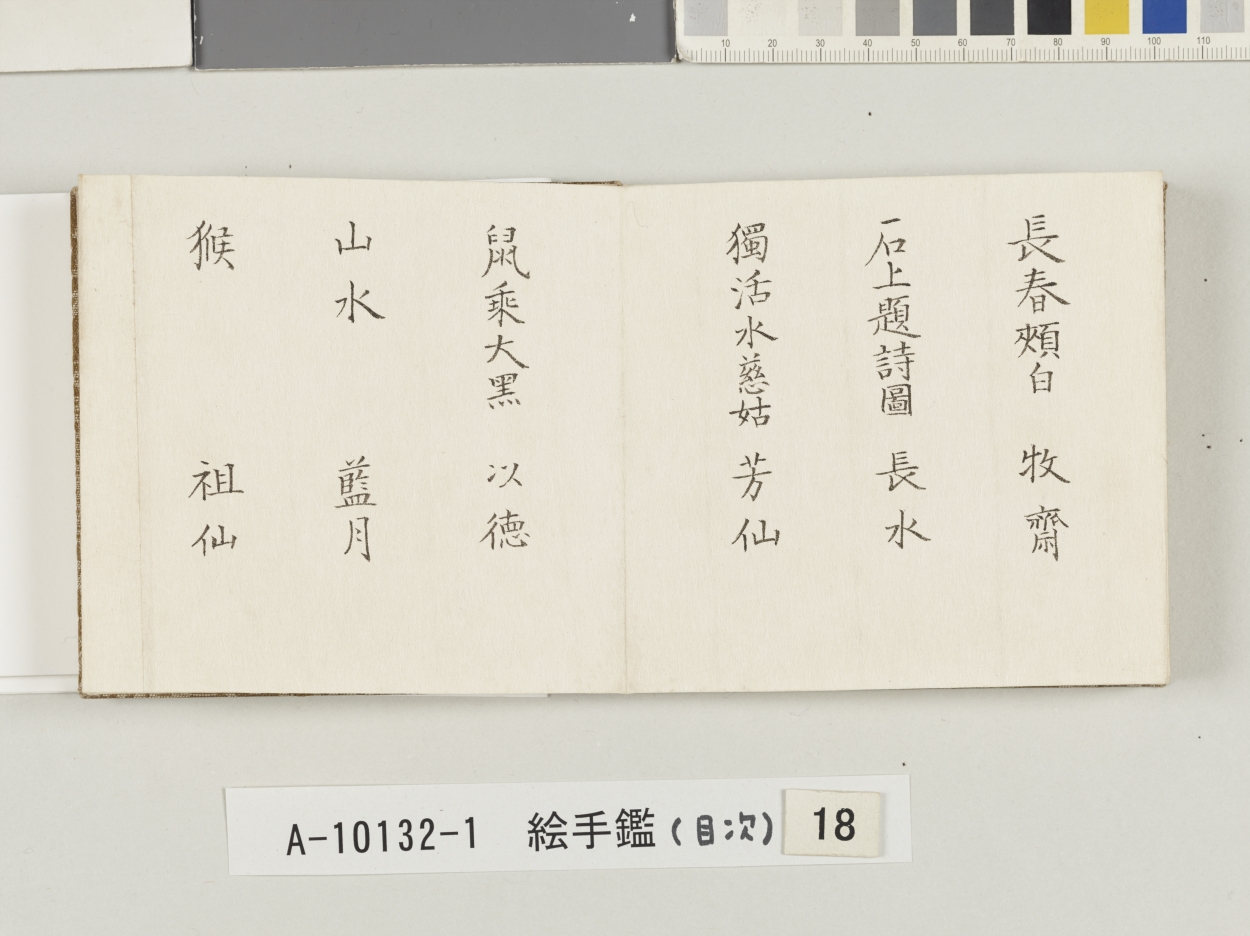 長春頰白 牧齋
石上題詩圖 長水
獨活水慈姑 芳仙
鼠乘大黑 以德
山水 藍月
猴 祖仙
A-10132-1 絵手鑑(目次) 18
10 20 30 40 50 60 70 80 90 100 110